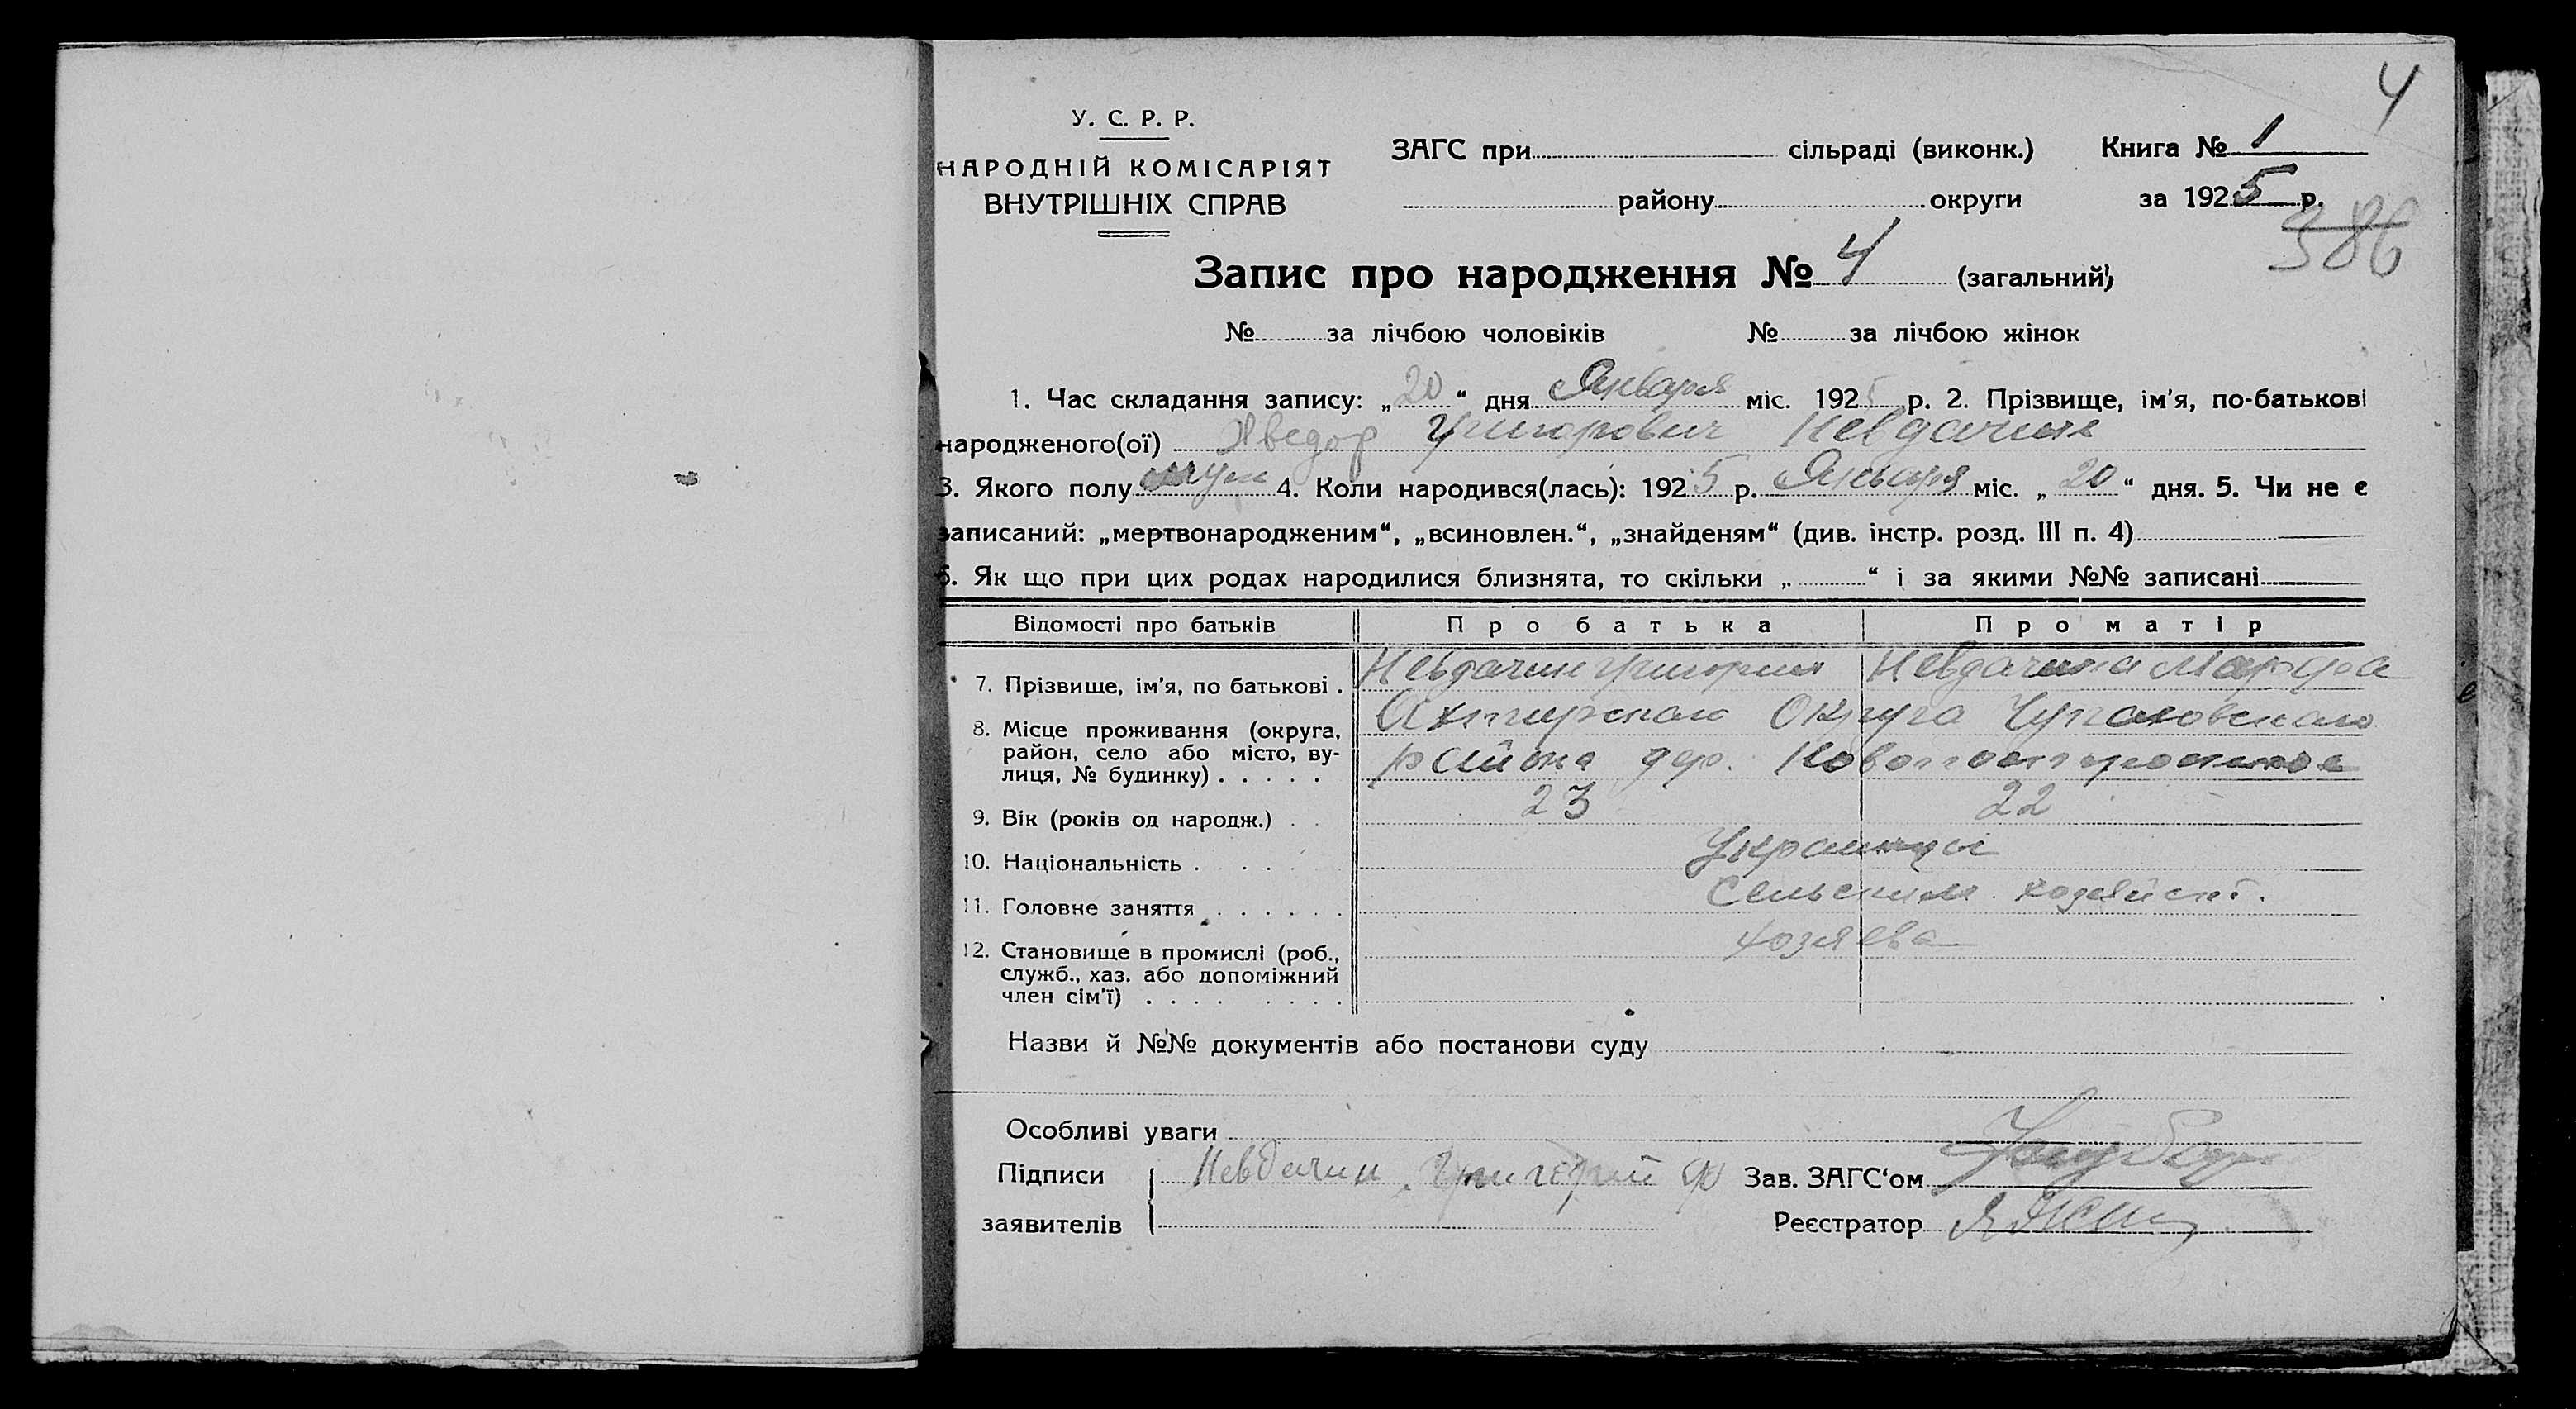 4
У. С. Р. Р.
НАРОДНІЙ КОМІСАРІЯТ
ВНУТРІШНІХ СПРАВ
ЗАГС при сільраді (виконк.) Книга № 1
району округи за 1925 р.
386
Запис про народження № 4 (загальний)
№ за лічбою чоловіків № за лічбою жінок
1. Час складання запису: „20“ дня Января міс. 1925 р. 2. Прізвище, ім'я, по-батькові
народженого(ої) Григорович Невдачин
3. Якого полу муж 4. Коли народився(лась): 1925 р. Января міс. „20“ дня. 5. Чи не є
записаний: „мертвонародженим“, „всиновлен.“, „знайденям“ (див. інстр. розд. III п. 4)
6. Як що при цих родах народилися близнята, то скільки „ “ і за якими №№ записані
Відомості про батьків Про батька Про матір
7. Прізвище, ім'я, по батькові . Невдачин Григорий Невдачина Марфа
8. Місце проживання (округа, район, село або місто, вулиця, № будинку) . . . . . Ахтирского Округа Чупаховского
района дер.
9. Вік (років од народж.) . . 23 22
10. Національність . . . . . Украинцы
11. Головне заняття . . . . . . Сельским хозяйст.
12. Становище в промислі (роб., служб., хаз. або допоміжний член сім'ї) . . . . . . . . хозяева
Назви й №№ документів або постанови суду
Особливі уваги
Підписи Невдачин Григорий Зав. ЗАГС‘ом
заявителів Реєстратор